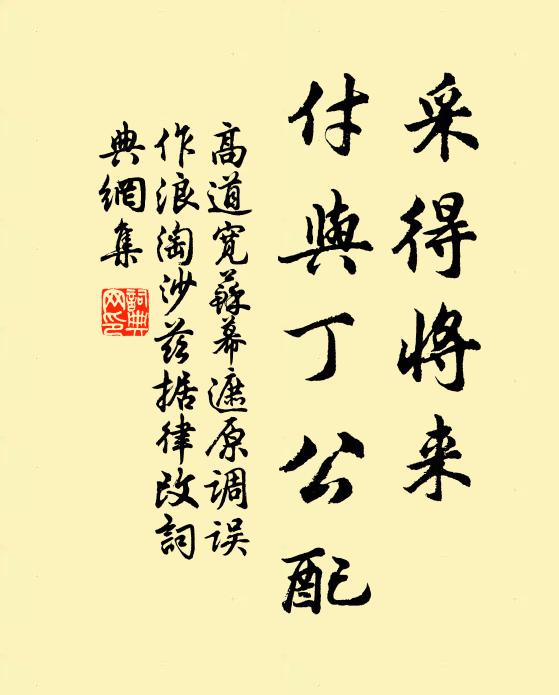 采得将来
付與丁公配
高道宽蘇幕遮原调误
作浪淘沙兹据律改詞
典網集
詞典
网印